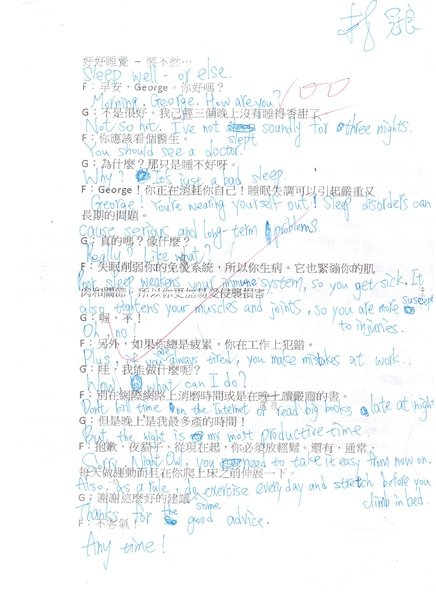 好好睡覺 – 要不然…
Sleep well - or else.
100
F：早安，George。你好嗎？
Morning, George. How are you?
G：不是很好。我已經三個晚上沒有睡得香甜了
Not so hot. I've not slept soundly for three nights.
F：你應該看個醫生。
You should see a doctor.
G：為什麼？那只是睡不好呀。
Why? It's just a bad sleep.
F：George！你正在消耗你自己！睡眠失調可以引起嚴重又
George! You're wearing yourself out! Sleep disorders can
長期的問題。
cause serious and long-term problems.
G：真的嗎？像什麼？
Really? Like what?
F：失眠削弱你的免疫系統，所以你生病。它也緊繃你的肌
Poor sleep weakens your immune system, so you get sick. It
肉和關節，所以你更加易受侵襲損害
also tightens your muscles and joints, so you are more suscept
to injuries.
G：喔，不！
Oh, no
F：另外，如果你總是疲累，你在工作上犯錯。
Plus, if you are always tired, you make mistakes at work.
G：哇，我能做什麼呢？
Wow! what can I do?
F：別在網際網路上消磨時間或是在晚上讀嚴肅的書。
Don't kill time on the Internet or read big books late at night
G：但是晚上是我最多產的時間！
But the night is my most productive time
F：抱歉，夜貓子，從現在起，你必須放輕鬆。還有，通常，
Sorry, Night Owl, you need to take it easy from now on.
每天做運動而且在你爬上床之前伸展一下。
Also, as a rule, do exercise every day and stretch before you
climb in bed.
G：謝謝這麼好的建議
Thanks for the some good advice.
F：不客氣！
Any time!